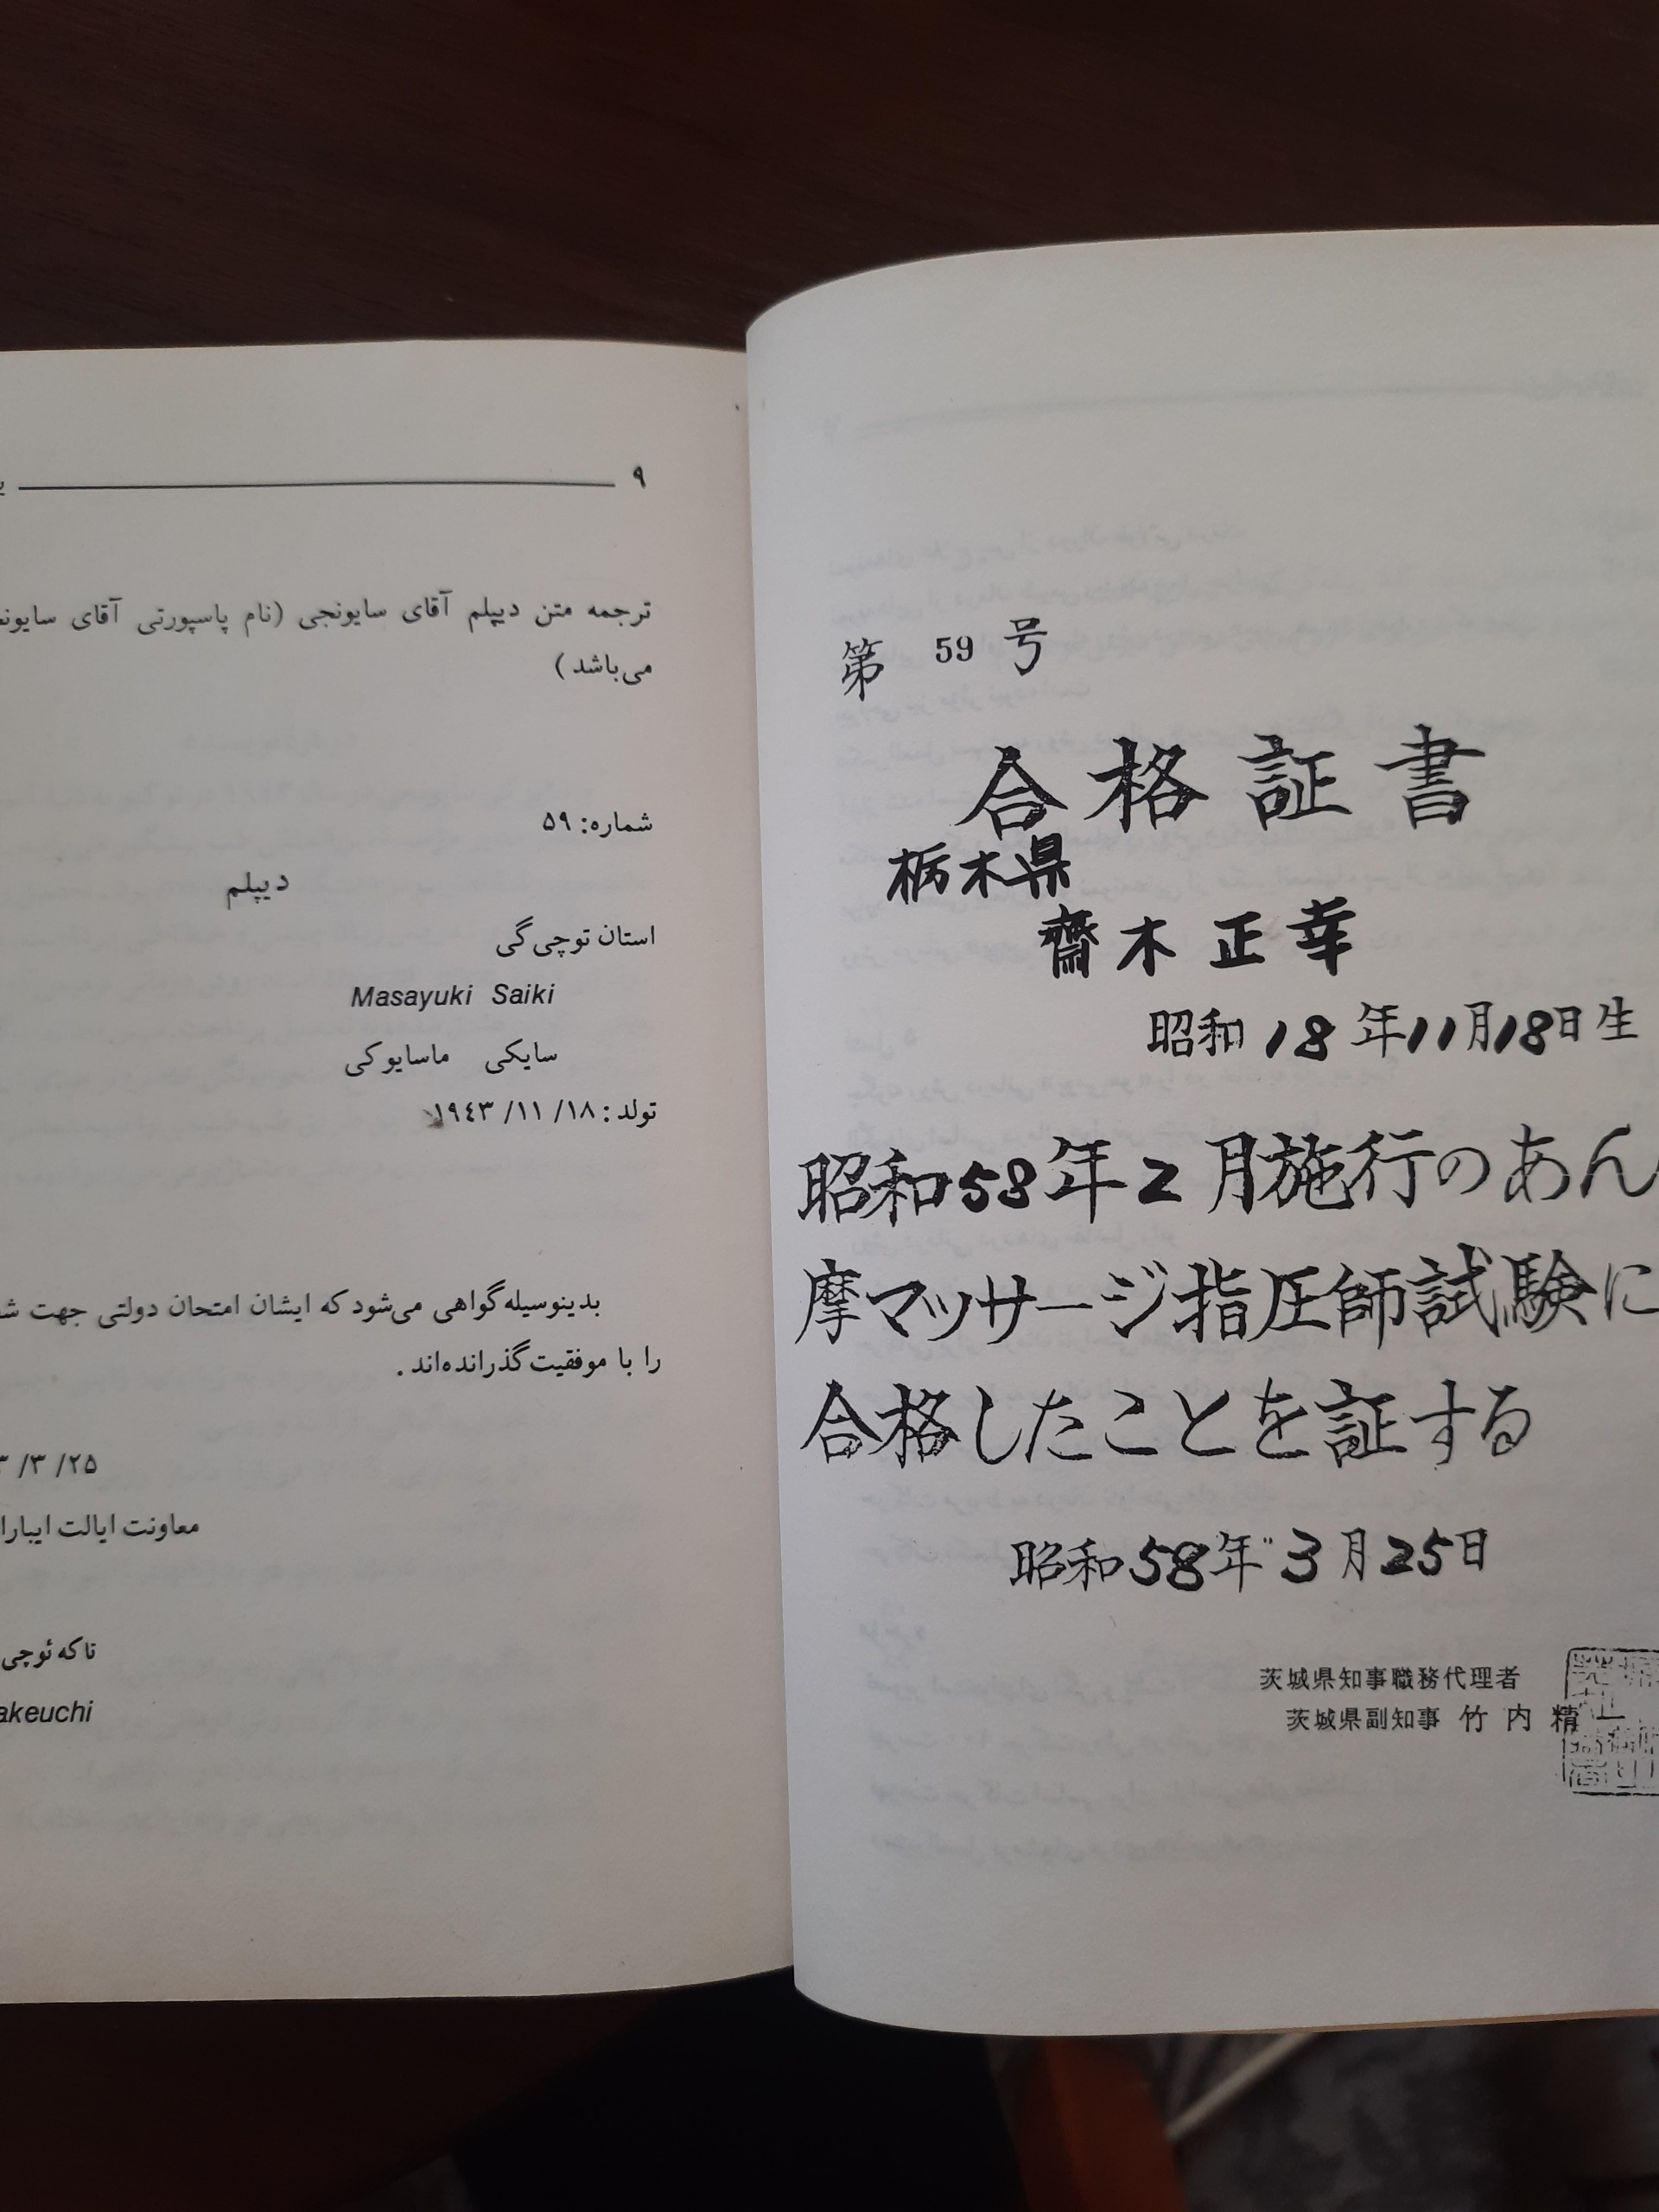 ۹
ترجمه متن دیپلم آقای سایونجی (نام پاسپورتی آقای
می‌باشد )
شماره: ۵۹
دیپلم
استان توچی‌گی
Masayuki Saiki
سایکی ماسایوکی
تولد: ۱۸/ ۱۱/ ۱۹٤۳
بدینوسیله گواهی می‌شود که ایشان امتحان دولتی جهت
را با موفقیت گذرانده‌اند .
۳/ ۲۵
معاونت ایالت
تاکه ئوچی
akeuchi
第 59 号
合格証書
栃木県
齋木正幸
昭和 18 年11月18日生
昭和58年2月施行のあん
摩マッサージ指圧師試験に
合格したことを証する
昭和58年3月25日
茨城県知事職務代理者
茨城県副知事 竹内 精